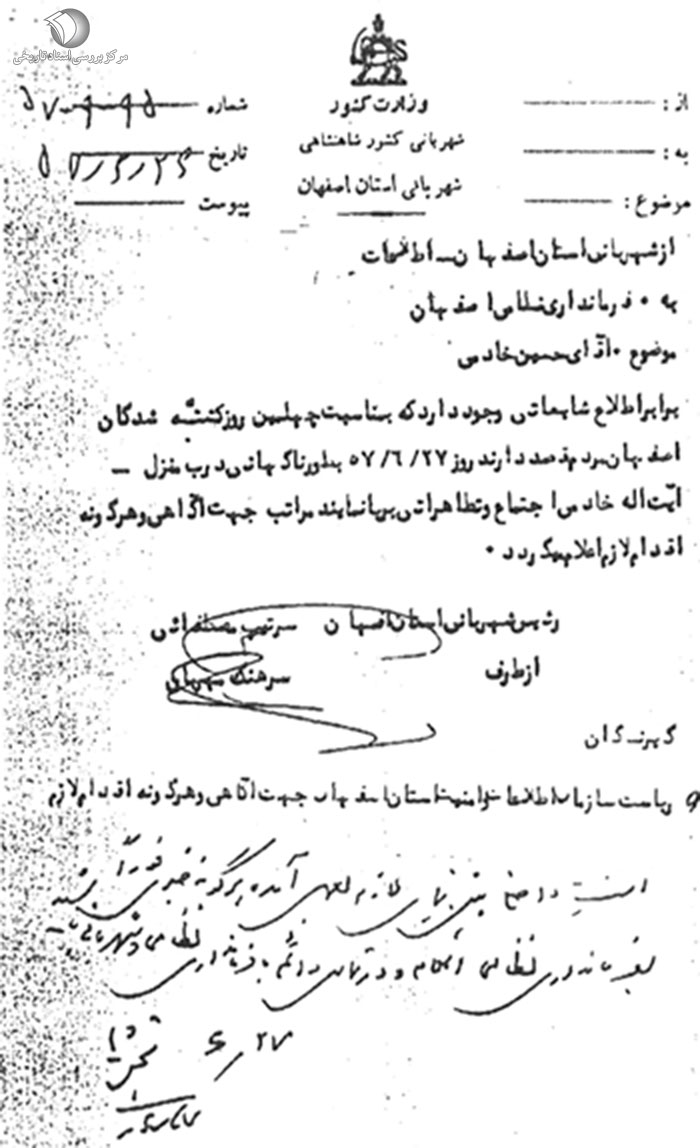 مرکز بررسی اسناد تاریخی
وزارت کشور
شهربانی کشور شاهنشاهی
شهربانی استان اصفهان
از :
به :
موضوع :
شماره
تاریخ ۵۷/۶/۲۶
پیوست
از شهربانی استان اصفهان ـ اطلاعات
به ۰ فرمانداری نظامی اصفهان
موضوع ۰ آقای حسین خادمی
برابر اطلاع شایعاتی وجود دارد که بمناسبت چهلمین روز کشته شدگان
اصفهان مردم قصد دارند روز ۵۷/۶/۲۷ بطور ناگهانی درب منزل ـ
آیت اله خادمی اجتماع و تظاهراتی برپا نمایند مراتب جهت آگاهی و هرگونه
اقدام لازم اعلام میگردد ۰
رئیس شهربانی استان اصفهان سرتیپ مصطفائی
از طرف سرهنگ
گیرندگان
ریاست سازمان اطلاعات و امنیت استان اصفهان جهت آگاهی و هرگونه اقدام لازم
پیش بینی لازم بعمل آمده هرگونه خبری فوراً
بفرمانداری نظامی اعلام و در تماس دائم با فرمانداری نظامی و شهربانی
۶/۲۷